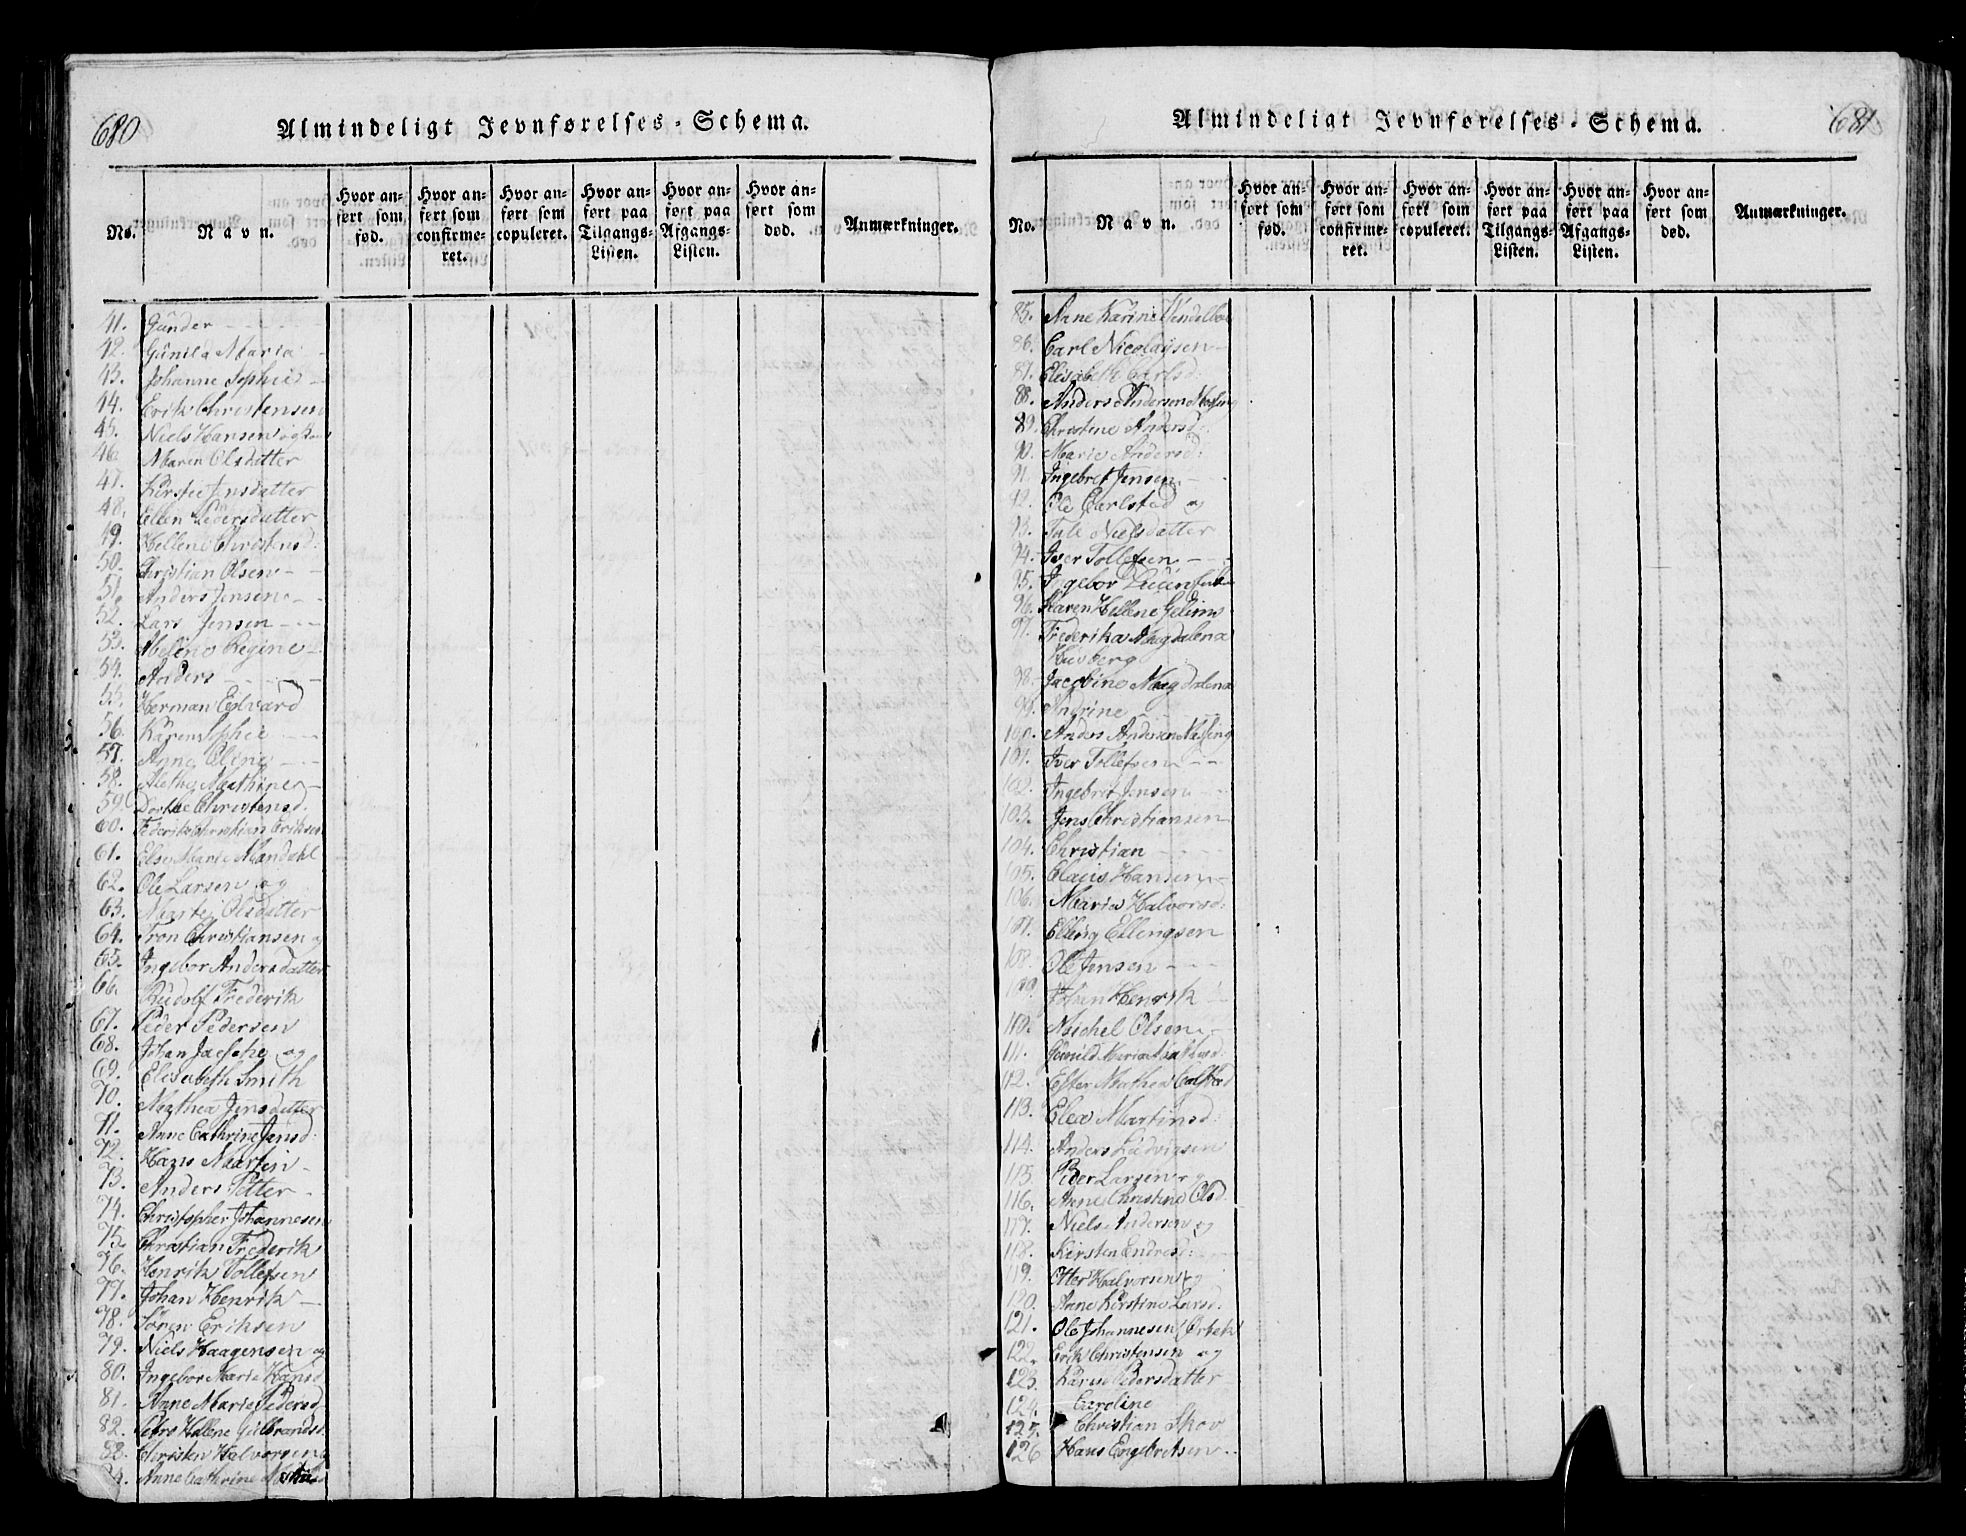 680
Almindeligt Jevnførelses-Schema.
No.
Navn.
Hvor anført som fød.
Hvor anført som confirmeret.
Hvor anført som copuleret.
Hvor anført paa Tilgangs-Listen.
Hvor anført paa Afgangs-Listen.
Hvor anført som død.
Anmærkninger.
41. Günder
42. Gunild Maria
43. Johanne Sophie
44. Erik Christensen
45. Niels Hansen og
46. Maren Olsdatter
47. Kirstie Jensdatter
48. Ellen Pedersdatter
49. Hellene Christensd:
50. Christian Olsen
51. Anders Jensen
52. Lars Jensen
53. Regine
54. Anders
55. Herman Edvard
56. Karen Sophie
57. Anne Eline
58. Mathine
59. Dorthe Christensd.
60. Federik Christian Eriksen
61. Else Marie Mandahl
62. Ole Larsen og
63. Marte Olsdatter
64. Tron Christiansen og
65. Ingebor Andersdatter
66. Rudolf Frederik
67. Peder Pedersen
68. Johan og
69. Elisabeth Smith
70. Mathea Jensdatter
71. Anne Cathrine Jensd:
72. Hans Martin
73. Anders Petter
74. Christopher Johannesen
75. Christian Frederik
76. Henrik Tollefsen
77. Johan Henrik
78. Sören Eriksen
79. Niels Haagensen og
80. Ingebor Marie Hansd
81. Anne Marie Pedersd
82. Hellene Gulbrandsd.
83. Christen Halvorsen
84. Anne Cathrine
681
Almindeligt Jevnførelses-Schema.
No.
Navn.
Hvor anført som fød.
Hvor anført som confirmeret.
Hvor anført som copuleret.
Hvor anført paa Tilgangs-Listen.
Hvor anført paa Afgangs-Listen.
Hvor anført som død.
Anmærkninger.
85. Anne Karine
86. Carl Nicolaysen
87. Elisabeth Carlsd:
88. Anders Andersen Messing
89. Christine Andersd:
90. Marie Andersd:
91. Ingebret Jensen
92. Ole Carlsted og
93. Tale Nielsdatter
94. Iver Tollefsen
95. Ingebor
96. Karen Hellene
97. Frederika Magdalena
98. Jacobine Magdalena
99. Andrine
100. Anders Andersen Messing
101. Iver Tollefsen
102. Ingebret Jensen
103. Jens Christiansen
104. Christian
105. Claus Hansen
106. Maria Halvorsd:
107. Elling Ellingsen
108. Ole Jensen
109. Johan Henrik
110. Michel Olsen
111. Gunild Maria
112. Ester Mathea
113. Elea Martinsd:
114. Anders Ludvigsen
115. Peder Larsen og
116. Anne Christine Olsd.
117. Niels Andersen og
118. Kirsten Endresd:
119. Otter Halvorsen og
120. Anne Kirstine Larsd:
121. Ole Johannesen
122. Erik Christensen og
123. Karen Pedersdatter
124. Caroline
125. Christian Skov
126 Hans Engebretsen